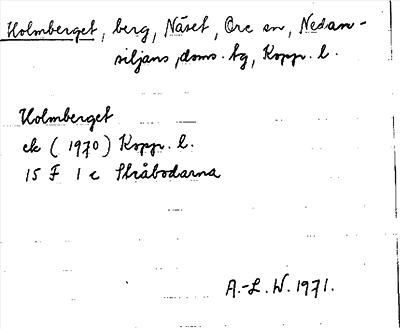 Holmberget, berg, Näset, Ore sn, Nedan-
siljans doms. tg, Kopp. l.
Holmberget
ek (1970) Kopp. l.
15 F 1 c Skråbodarna
A.-L. W. 1971.